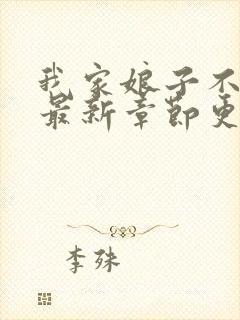 我家娘子不
最新章节更
李殊